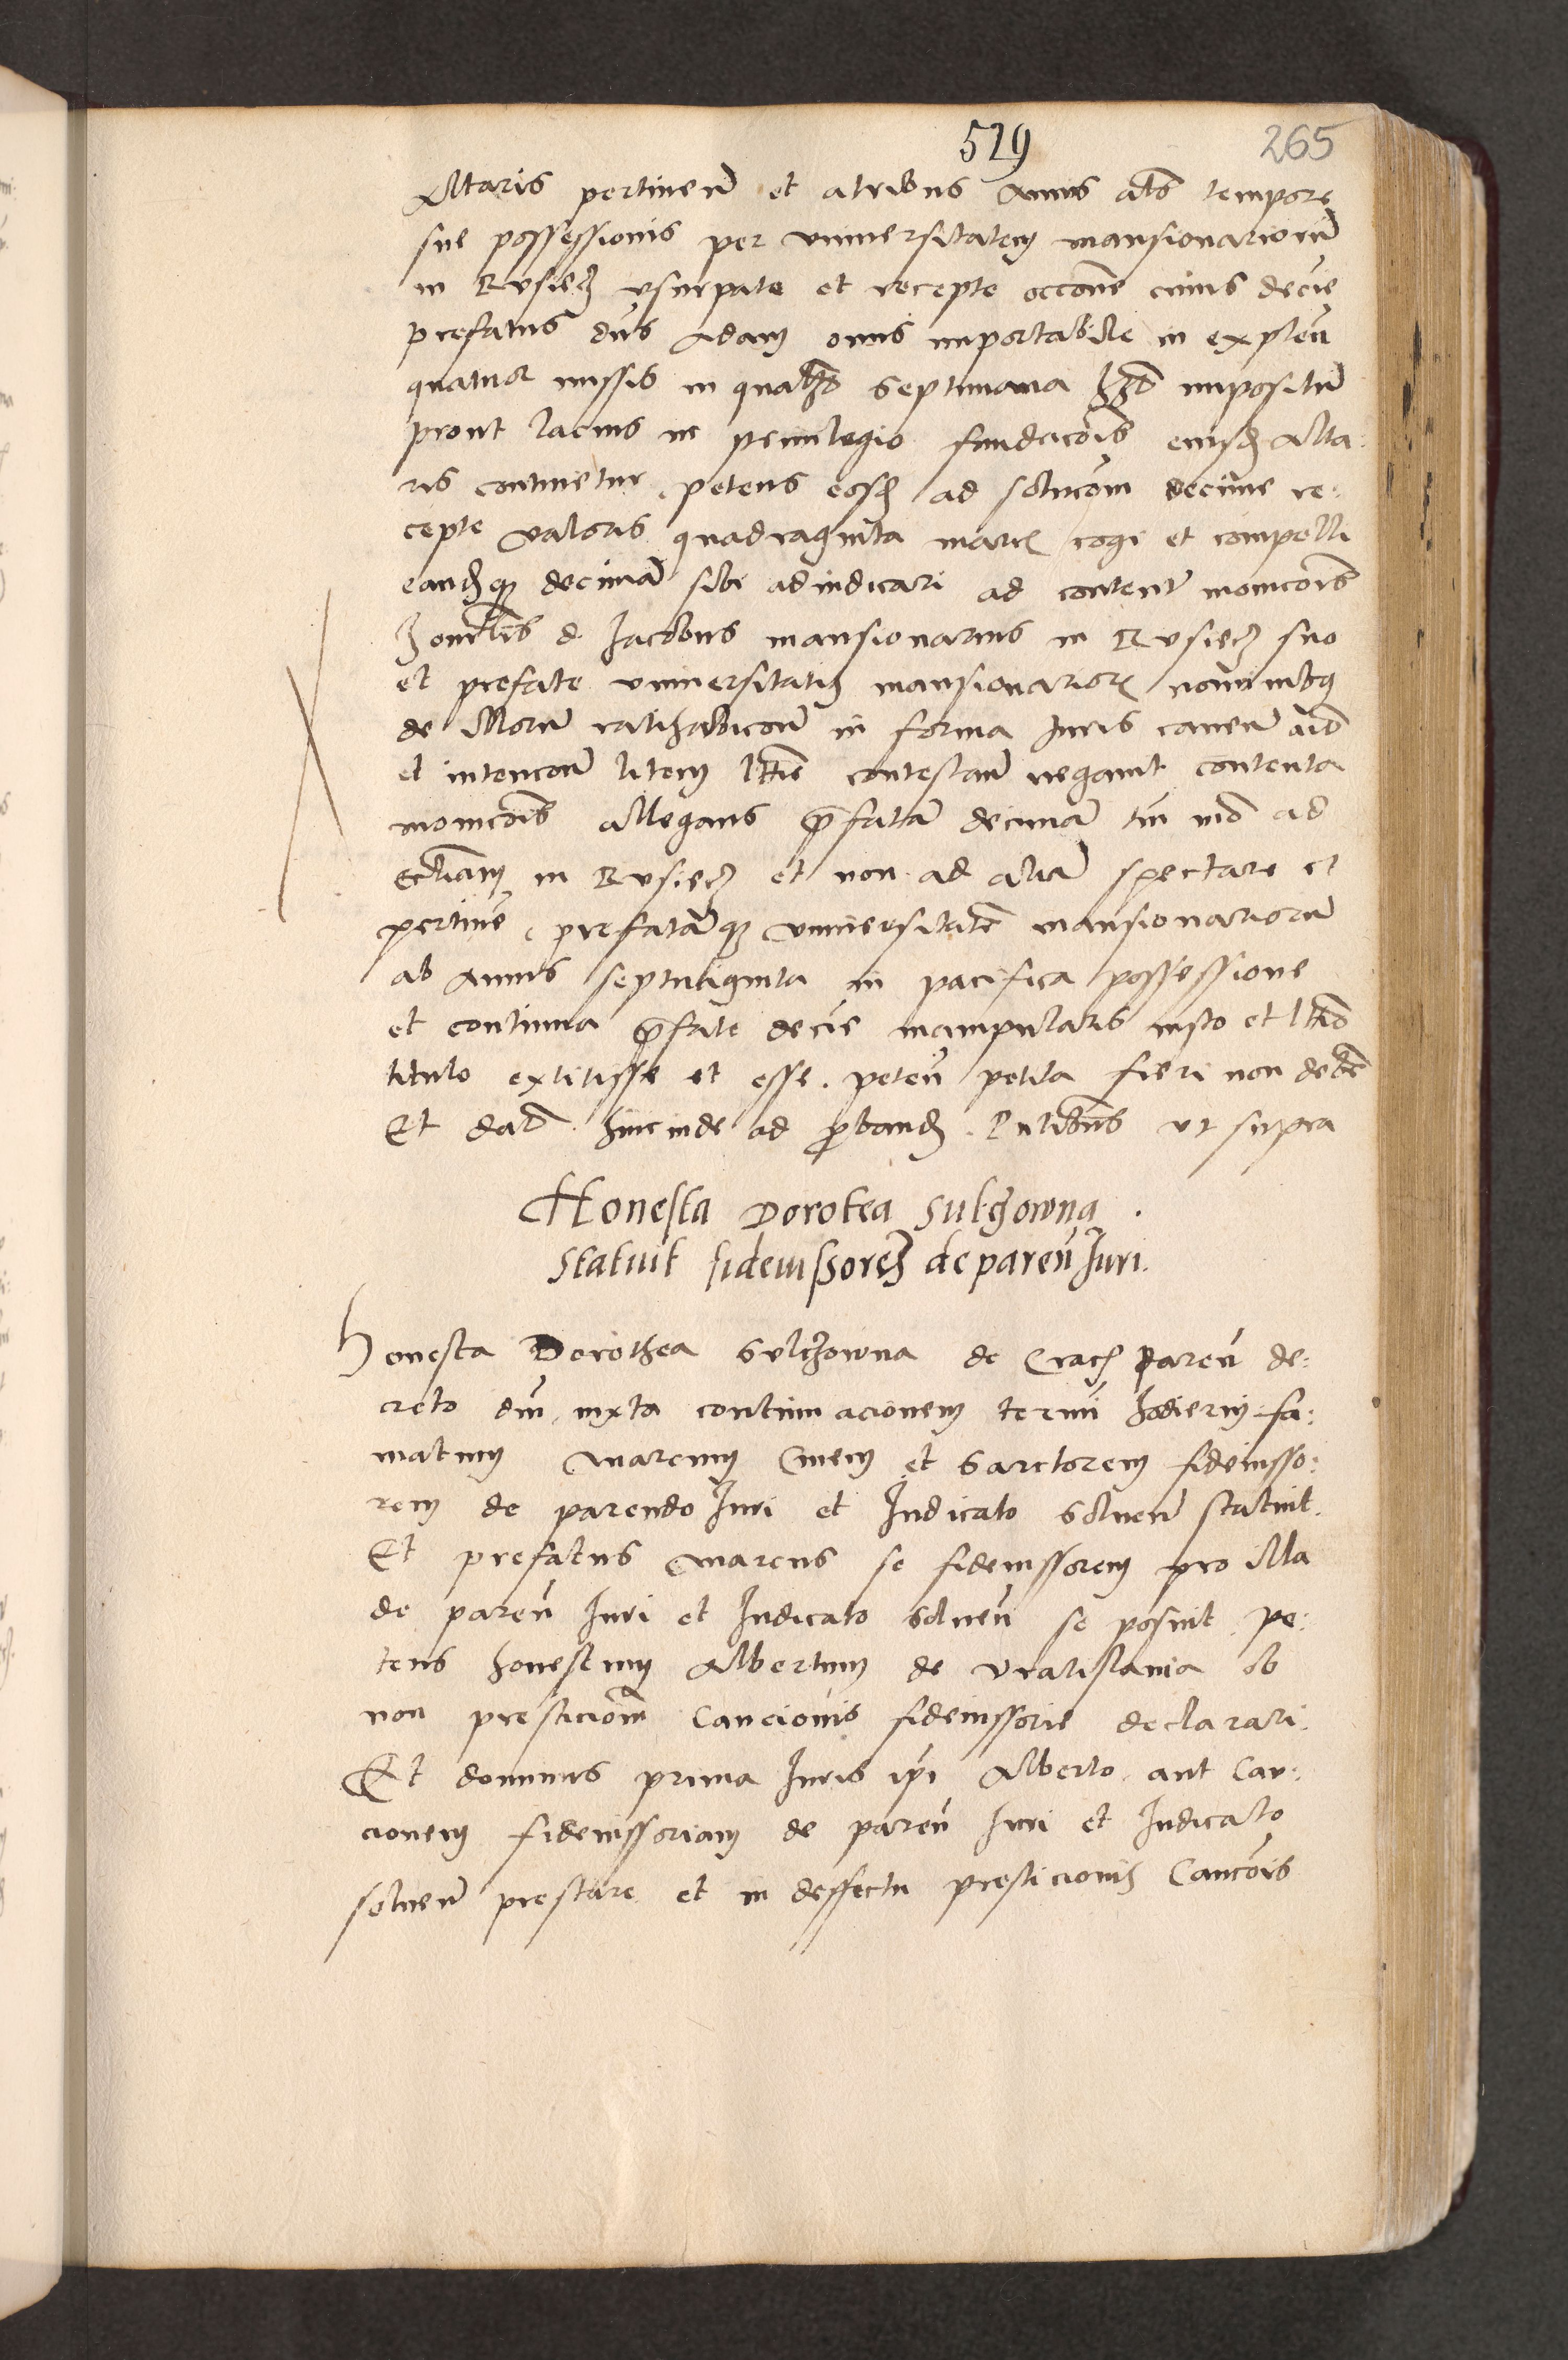 529 265
Altaris pertineñ et a tribus Annis ats tempore
sue possessionis per vniuersitatem mansionariorũ
in Rusiecz vsurpate et recepte occone cuius decie
prefatus dns Adam onus importabile in expleñ
quatuor missis in qualibet septimana impositũ
prout lacius in preuilegio fundacõis eiusd Alta:
ris continetur, petens eosd ad soluco͂m decime re:
cepte valoris quadraginta marc cogi et compelli
eandq decimã sibi adiudicari ad contentͣ monicõis
Honlis d Jacobus mansionarius in Rusiecz suo
et prefate vniuersitatis mansionarior nominibq
de illorũ ratihabicoñ in forma Iuris caueñ aio
et intencoñ litem lttie contestañ negauit contenta
monicõis allegans p̃fatã decimã ad
eccliam in Rusiecz et non ad aliã spectare et
pertinẽ, prefatãq vniuersitatẽ mansionariorũ
ab annis septuaginta in pacifica possessione
et continua p̃fate decie manipularis iusto et
titulo extitisse et esse. peteñ petita fieri non debẽ
Et hincinde ad p̃band. Pntibus vt supra
Honesta Dorotea Sulczowna
statuit fideiussorem de pareñ Juri.
Honesta Dorothea Sulczowna de Crac pareñ de:
creto dñi iuxta continuacionem termi hodierni fa:
matum Marcum Ciuem et Sartorem fideiusso:
rem de parendo Juri et Judicato solueñ statuit.
Et prefatus Marcus se fideiussorem pro illa
de pareñ Juri et Judicato solueñ se posuit pe:
tens honestum Albertum de Vratislauia ob
non presticiom Caucionis fideiussorie declarari.
Et dominus prima Juris ipi Alberto aut Cau:
cionem fideiussoriam de pareñ Juri et Judicato
solueñ prestare et in deffectu presticionis Caucõis